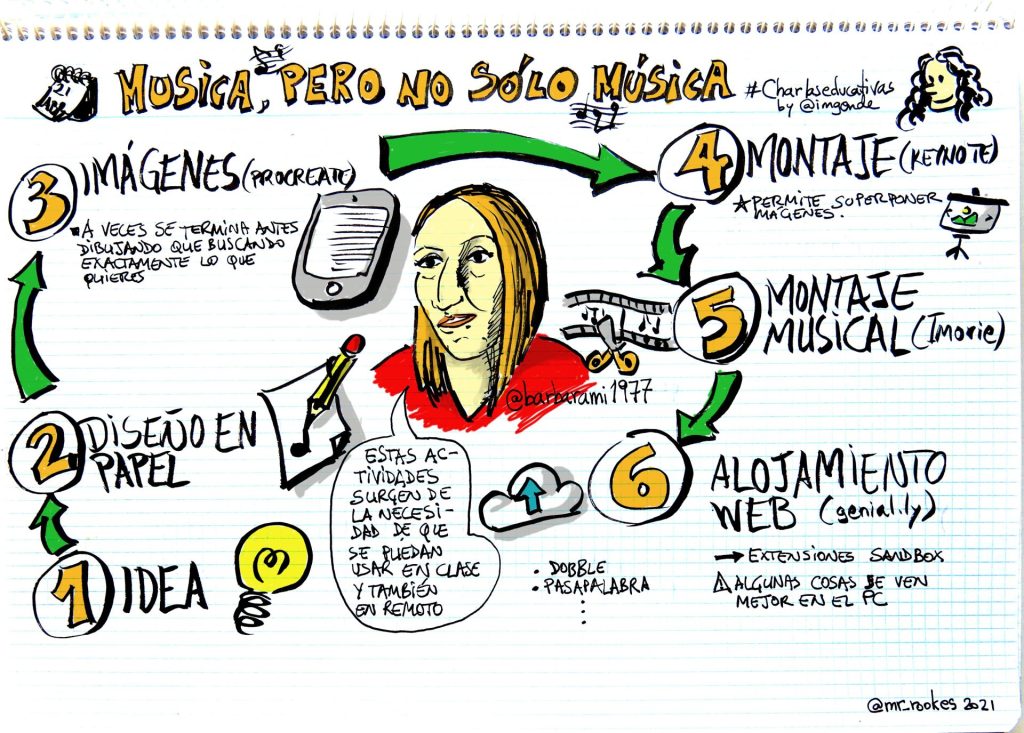 21
MUSICA, PERO NO SÓLO MÚSICA
#Charlaseducativas
by @imgende
3 IMÁGENES (PROCREATE)
A VECES SE TERMINA ANTES
DIBUJANDO QUE BUSCANDO
EXACTAMENTE LO QUE
QUIERES
4 MONTAJE (KEYNOTE)
PERMITE SUPERPONER
IMAGENES.
5 MONTAJE
MUSICAL (Imovie)
@barbarami1977
2 DISEÑO EN
PAPEL
1 IDEA
ESTAS AC-
TIVIDADES
SURGEN DE
LA NECESI-
DAD DE QUE
SE PUEDAN
USAR EN CLASE
Y TAMBIÉN
EN REMOTO
6 ALOJAMIENTO
WEB (genial.ly)
→ EXTENSIONES SANDBOX
ALGUNAS COSAS SE VEN
MEJOR EN EL PC
· DOBBLE
· PASAPALABRA
@mr_rookes 2021